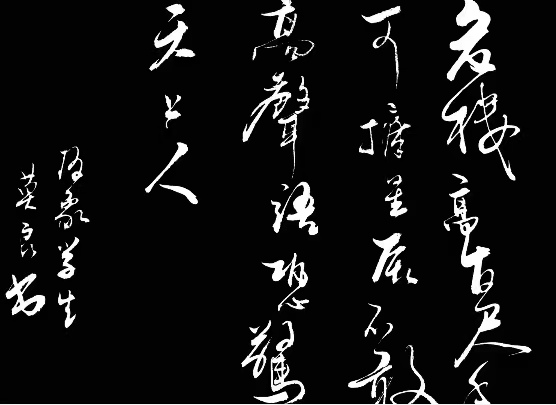 危楼高百尺手
可摘星辰不敢
高聲語恐驚
天上人
象学生
莫书